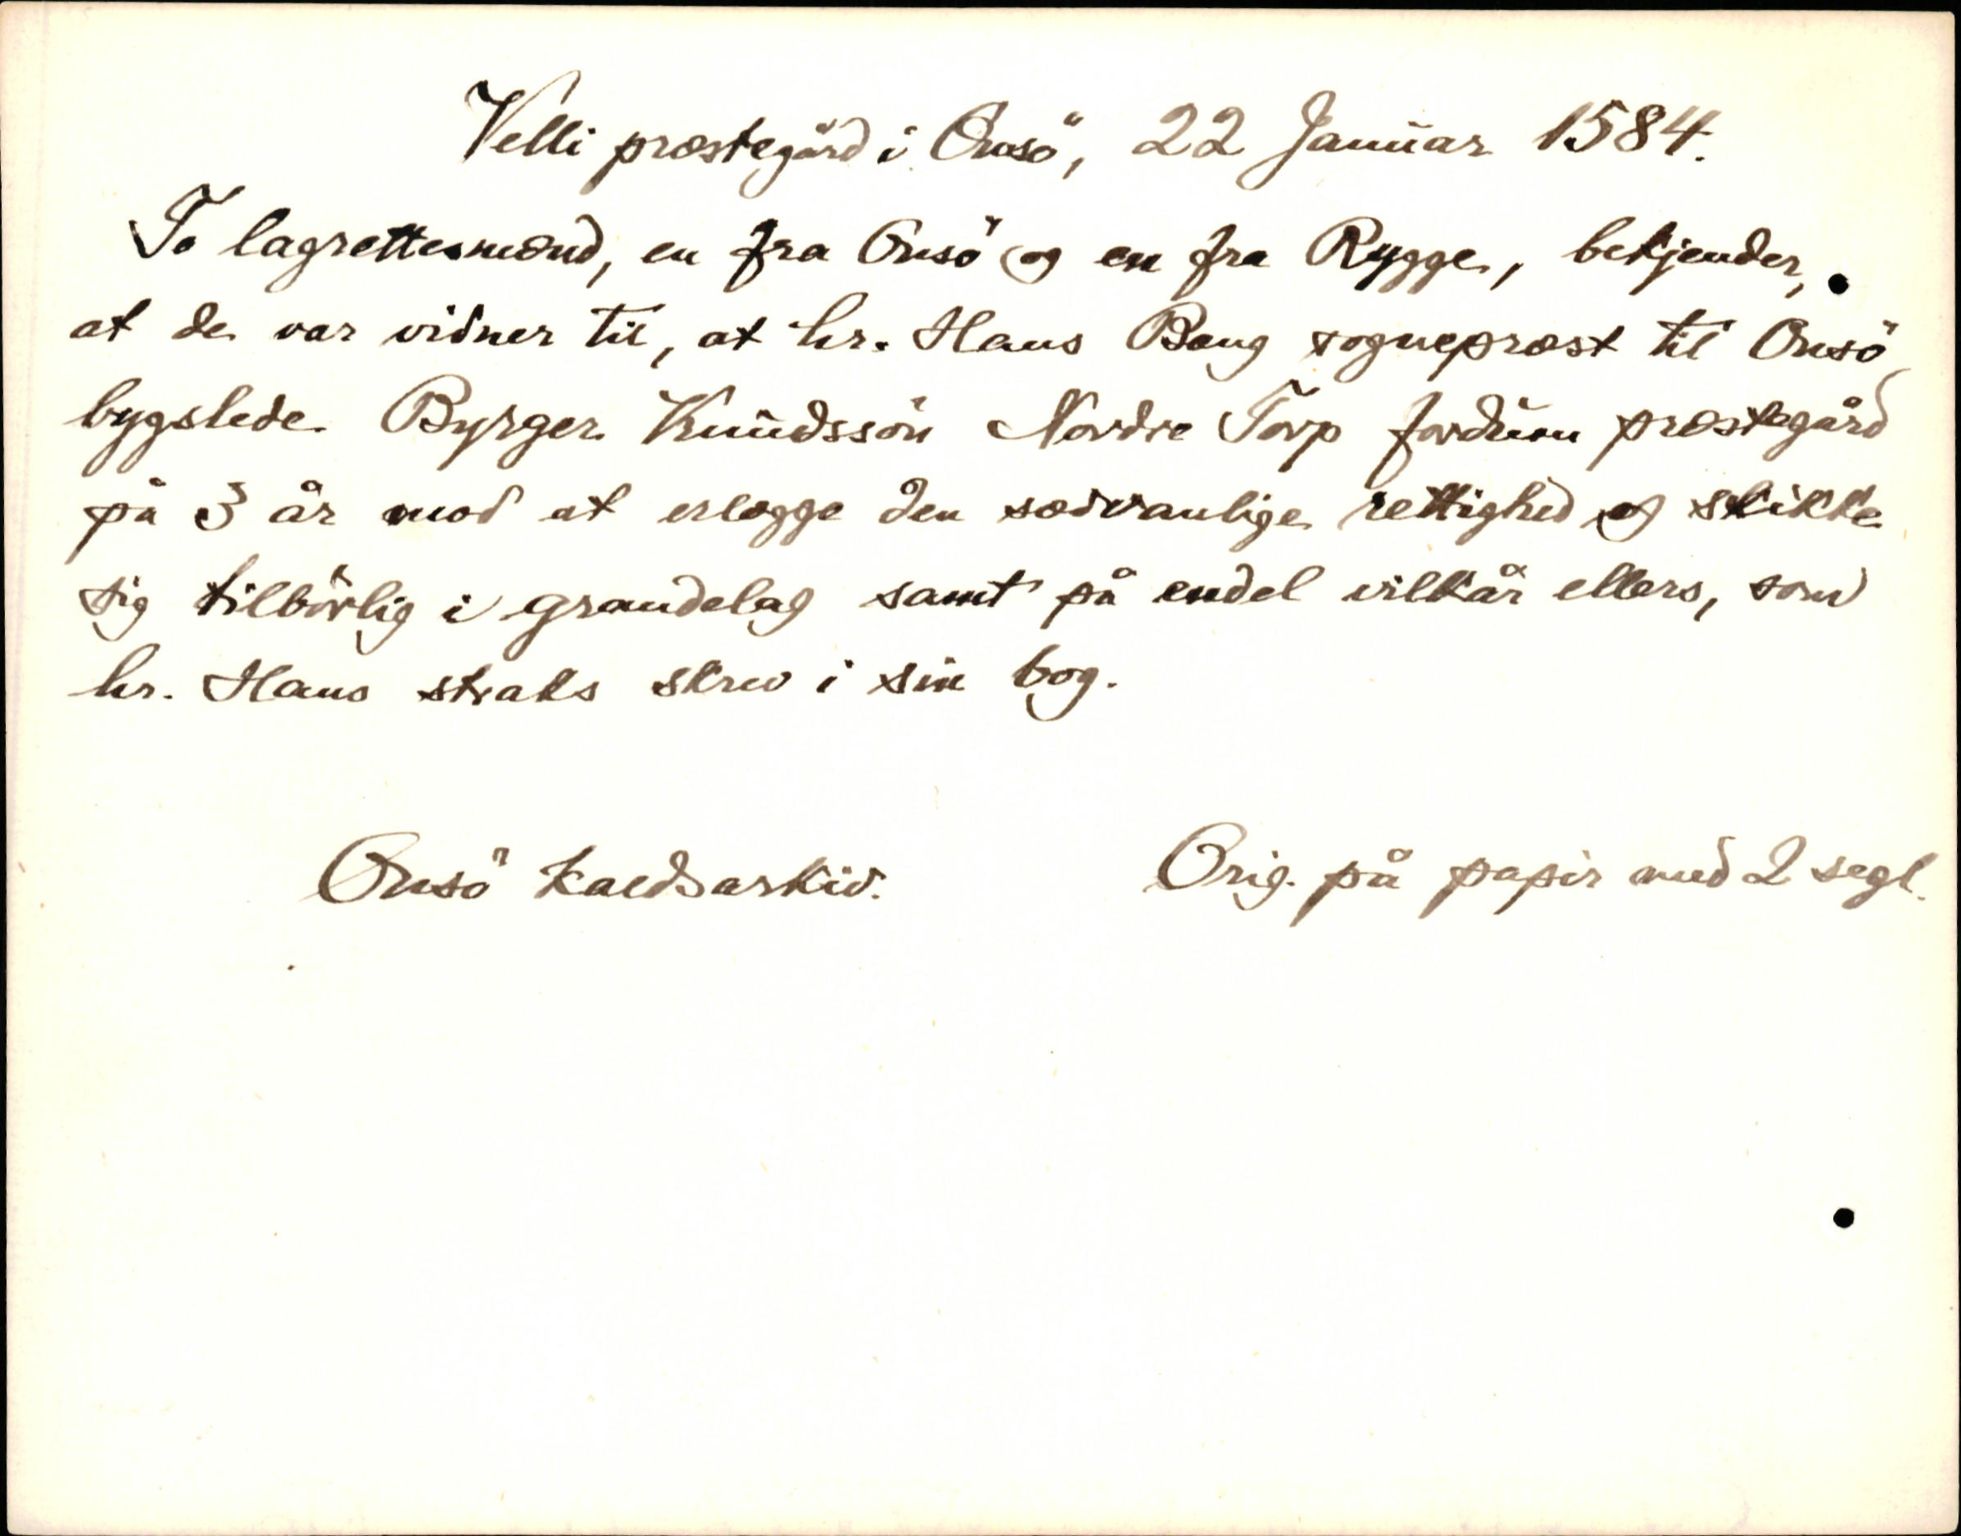 Velli præstegård i Onsö, 22 Januar 1584.
To lagrettesmænd, en fra Onsö og en fra Rygge, bekjender,
at de var vidner til, at hr. Hans Bang sognepræst til Onsö
bygslede Byrger Knudssön Nordre Torp fordum præstegård
på 3 år mod at erlægge den sædvanlige rettighed og skikke
sig tilbörlig i grandelag samt på endel vilkår ellers, som
hr. Hans straks skrev i sin bog.
Onsö kaldsarkiv. Orig. på papir med 2 segl.